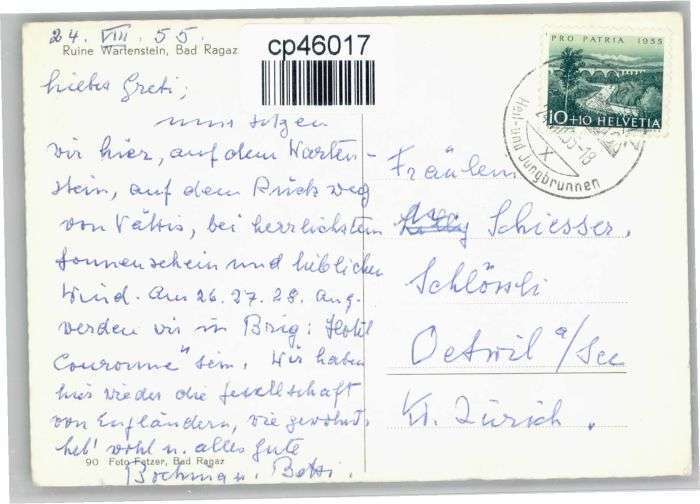 24. VIII. 55.
Ruine Wartenstein, Bad Ragaz
cp46017
PRO PATRIA 1955
10+10 HELVETIA
55-18
X
Heil- und Jungbrunnen
Liebes Greti,
nun sitzen
wir hier, auf dem Warten-
stein, auf dem Rückweg
von Vättis, bei herrlichstem
Sonnenschein und lieblichem
Wind. Am 26. 27. 28. Aug.
werden wir in Brig: Hotel
Couronne" sein. Wir haben
hier wieder die Gesellschaft
von Engländern, wie gewohnt.
Leb' wohl u. alles Gute
90 Foto Fetzer, Bad Ragaz
Fräulein
Schiesser,
Schlössli
Oetwil a/See
Kt. Zürich.